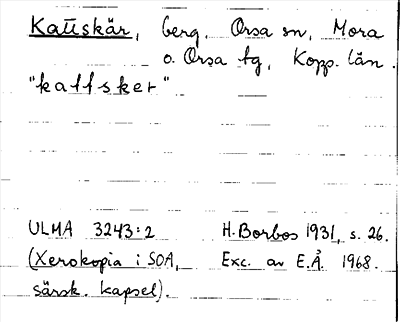 Kattskär, berg, Orsa sn, Mora
o. Orsa tg, Kopp. län.
"kattsker"
ULMA 3243:2 H. Borbos 1931, s. 26.
(Xerokopia i SOA, Exc. av E.Å. 1968.
särsk. kapsel).